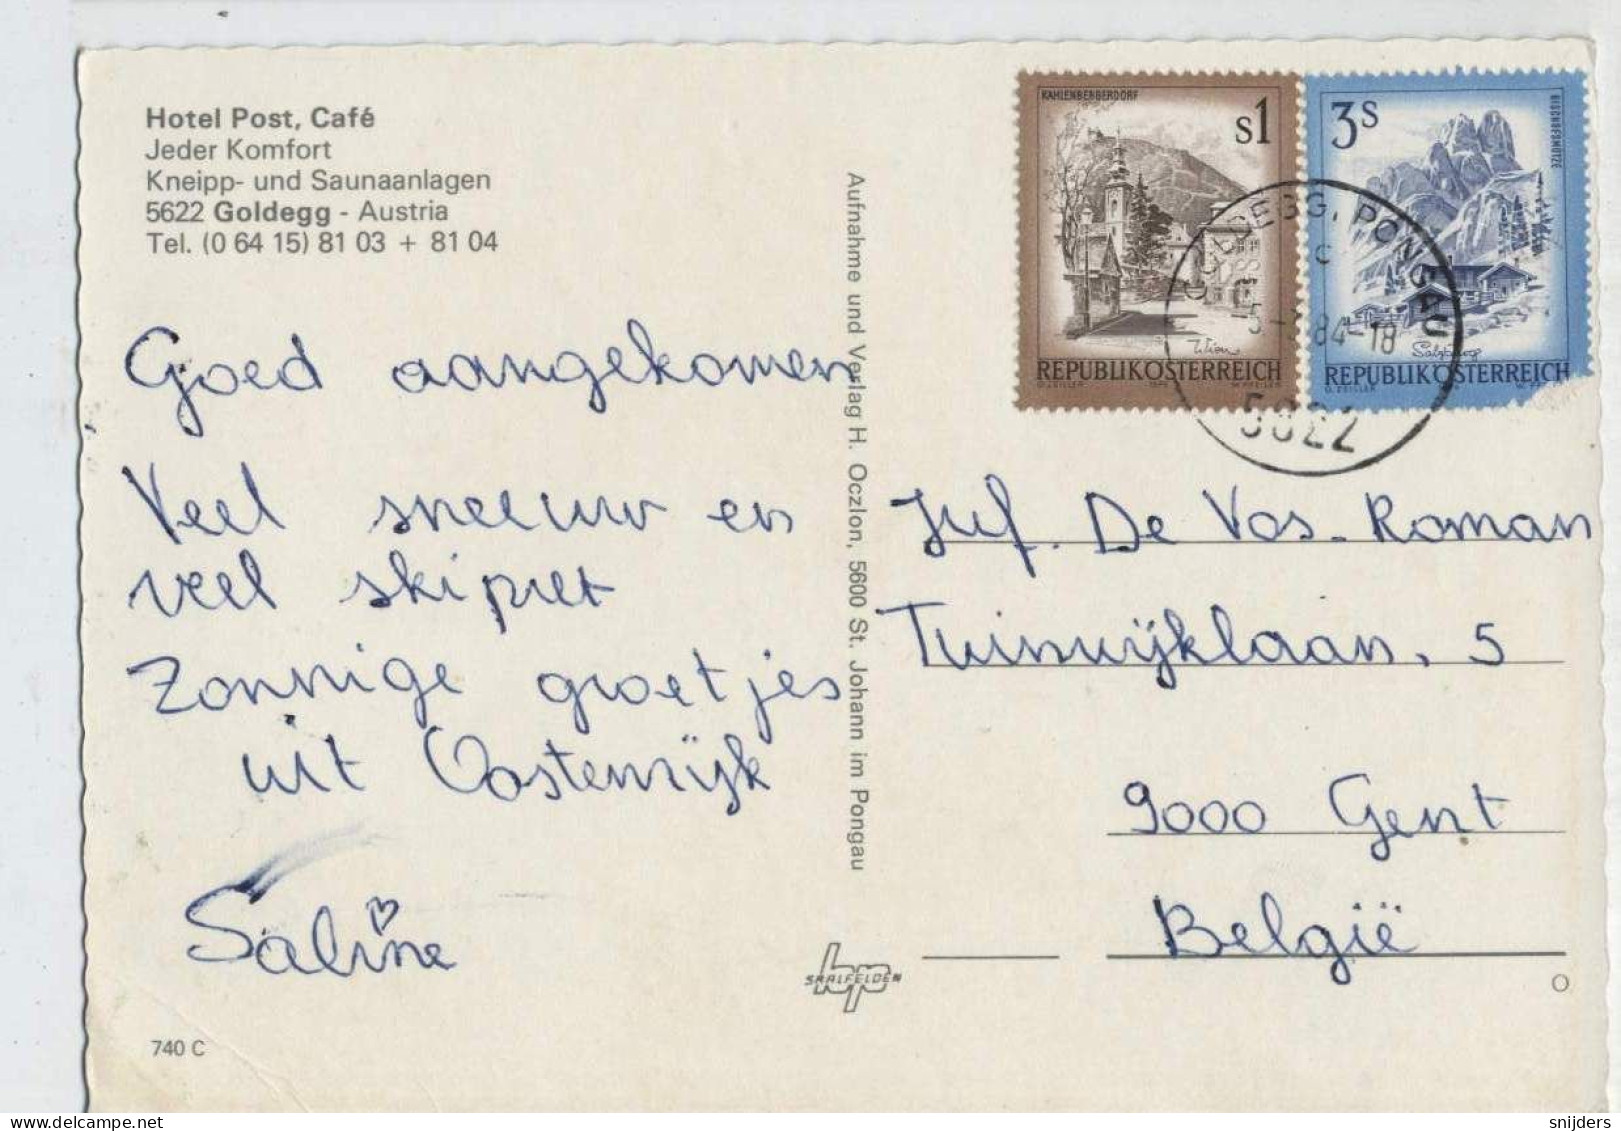 Hotel Post, Café
Jeder Komfort
Kneipp- und Saunaanlagen
5622 Goldegg - Austria
Tel. (0 64 15) 81 03 + 81 04
Goed aangekomen
Veel sneeuw en
veel skipret
Zonnige groetjes
uit Oostenrijk
Saline
740 C
Aufnahme und Verlag H. Oczlon, 5600 St. Johann im Pongau
SAALFELDEN
KAHLENBERGERDORF
S1
Wien
REPUBLIK ÖSTERREICH
3S
BISCHOFSMÜTZE
Salzburg
REPUBLIK ÖSTERREICH
GOLDEGG, PONGAU
84-18
5622
Juf. De Vos-Roman
Tuinwijklaan, 5
9000 Gent
België
snijders